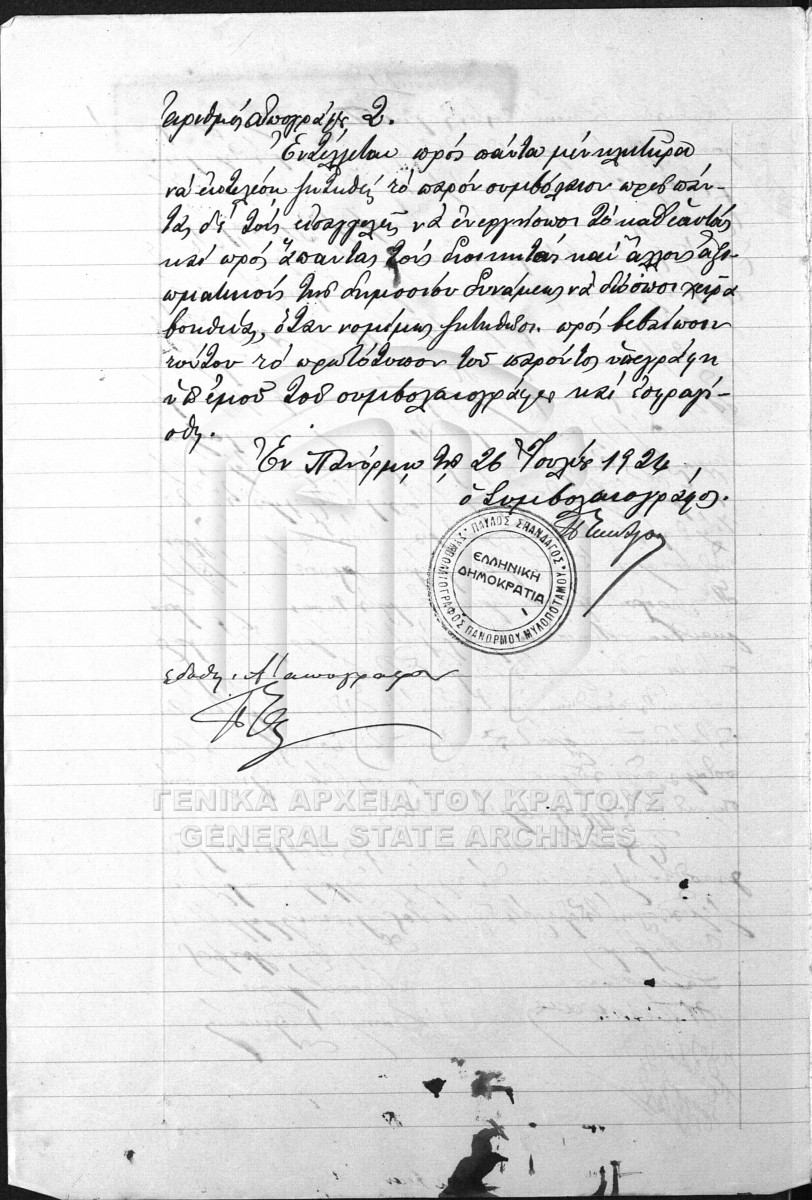 αριθμός απογράφου 2.
Ἐντέλλεται πρός πάντα μέν κλητῆρα
νά ἐκτελέσῃ ζητηθείς τό παρόν συμβόλαιον πρός πάν-
τας δέ τούς εἰσαγγελεῖς νά ἐνεργήσωσι τό καθ' ἑαυτούς
καί πρός ἅπαντας τούς διοικητάς καί ἄλλους ἀξι-
ωματικούς τῆς δημοσίου δυνάμεως νά δώσωσι χεῖρα
βοηθείας, ὅταν νομίμως ζητηθῶσι. πρός βεβαίωσιν
τούτου τό πρωτότυπον τοῦ παρόντος ὑπεγράφη
ὑπ' ἐμοῦ τοῦ συμβολαιογράφου καί ἐσφραγί-
σθη.
Ἐν Πανόρμῳ τῇ 26 Ἰουλίου 1924
ὁ Συμβολαιογράφος.
ΣΥΜΒΟΛΑΙΟΓΡΑΦΟΣ ΠΑΝΟΡΜΟΥ ΜΥΛΟΠΟΤΑΜΟΥ * ΠΑΥΛΟΣ ΣΠΑΝΔΑΓΟΣ *
ΕΛΛΗΝΙΚΗ
ΔΗΜΟΚΡΑΤΙΑ
εδόθη Α' απόγραφον
ΓΕΝΙΚΑ ΑΡΧΕΙΑ ΤΟΥ ΚΡΑΤΟΥΣ
GENERAL STATE ARCHIVES